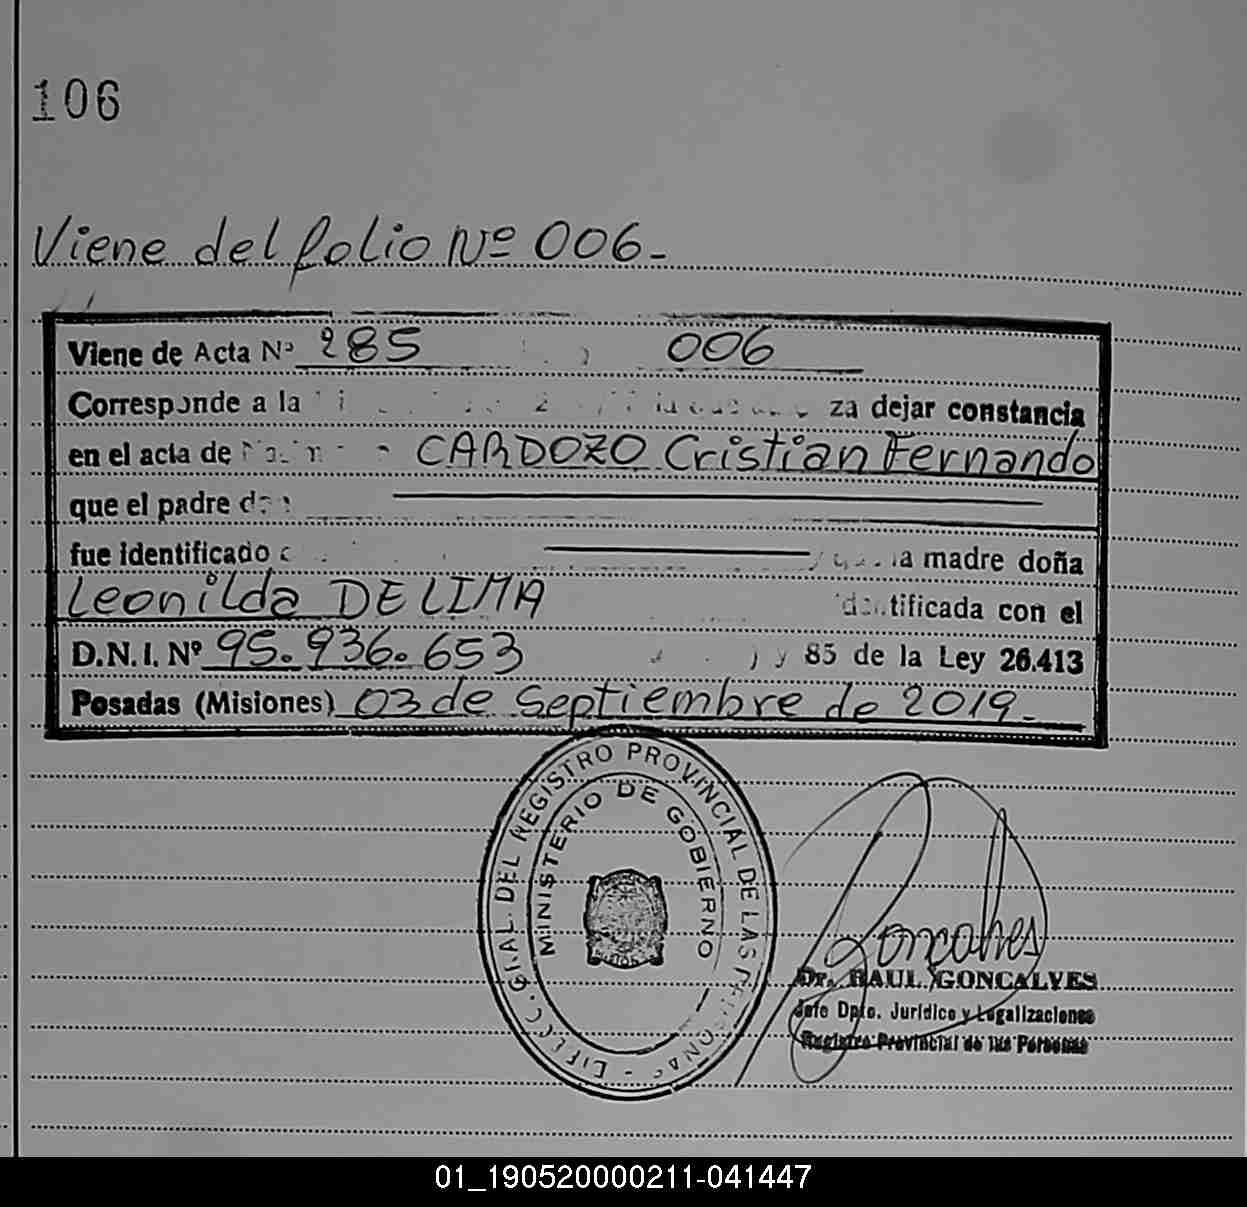 106
Viene del folio Nº 006.-
Viene de Acta Nº 285 006
Corresponde a la za dejar constancia
en el acta de CARDOZO Cristian Fernando
que el padre
fue identificado la madre doña
Leonilda DE LIMA identificada con el
D.N.I. Nº 95.936.653 85 de la Ley 26.413
Posadas (Misiones) 03 de Septiembre de 2019.-
DEL REGISTRO PROVINCIAL DE LAS
MINISTERIO DE GOBIERNO
Goncalves
Dr. RAUL GONCALVES
Jefe Dpto. Jurídico y Legalizaciones
Registro Provincial de las Personas
01_190520000211-041447